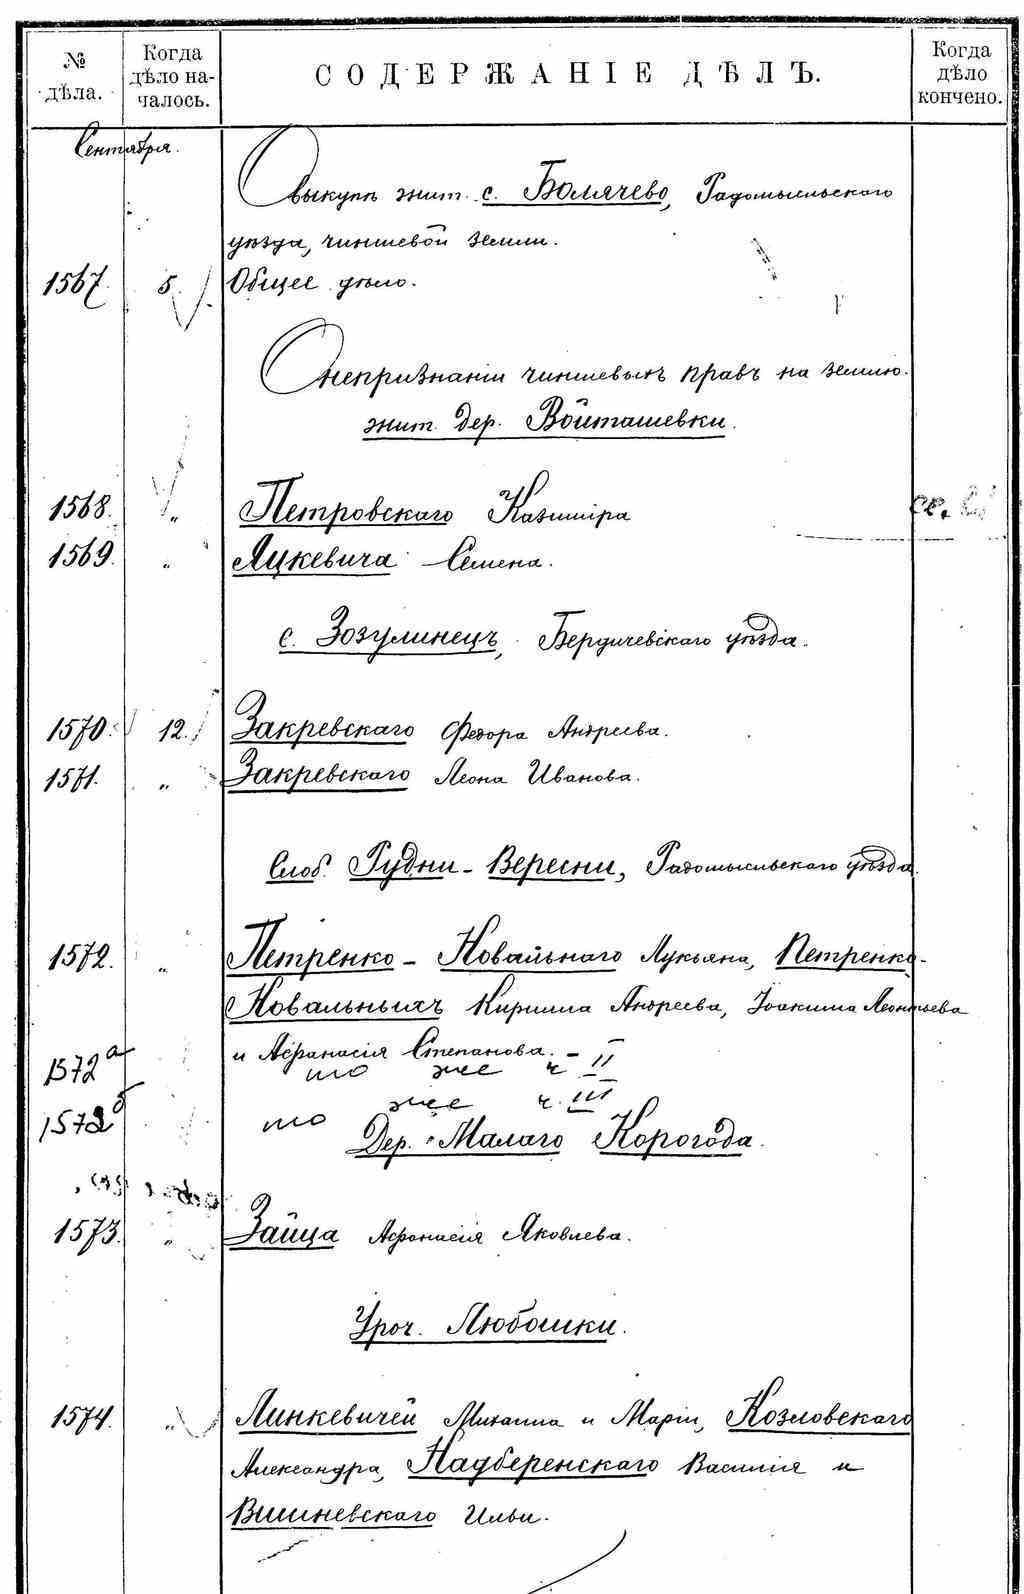 № дѣла.
Когда дѣло на-
чалось.
СОДЕРЖАНІЕ ДѢЛЪ.
Когда дѣло кончено.
Сентября.
О выкупѣ жит. с. Болячево, Радомысльскаго
уѣзда, чиншевой земли.
1567. 5. Общее дѣло.
О непризнаніи чиншевыхъ правъ на землю.
жит. дер. Войташевки.
1568. „ Петровскаго Казиміра
1569. „ Яцкевича Семена.
с. Зозулинецъ, Бердичевскаго уѣзда.
1570. 12. Закревскаго Федора Андреева.
1571. „ Закревскаго Леона Иванова.
Слоб. Рудни-Вересни, Радомысльскаго уѣзда.
1572. „ Петренко-Ковальнаго Лукьяна, Петренко-
Ковальныхъ Кирилла Андреева, Іоакима Леонтьева
и Афанасія Степанова.
1572а то же ч II
1572б то же ч. III
Дер. Малаго Корогода.
1573. „ Зайца Афанасія Яковлева.
Уроч. Любошки.
1574. „ Линкевичей Михаила и Маріи, Козловскаго
Александра, Надберенскаго Василія и
Вишневскаго Ильи.